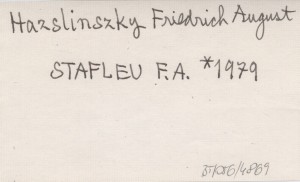 Hazslinszky Friedrich August
STAFLEU F.A. *1979